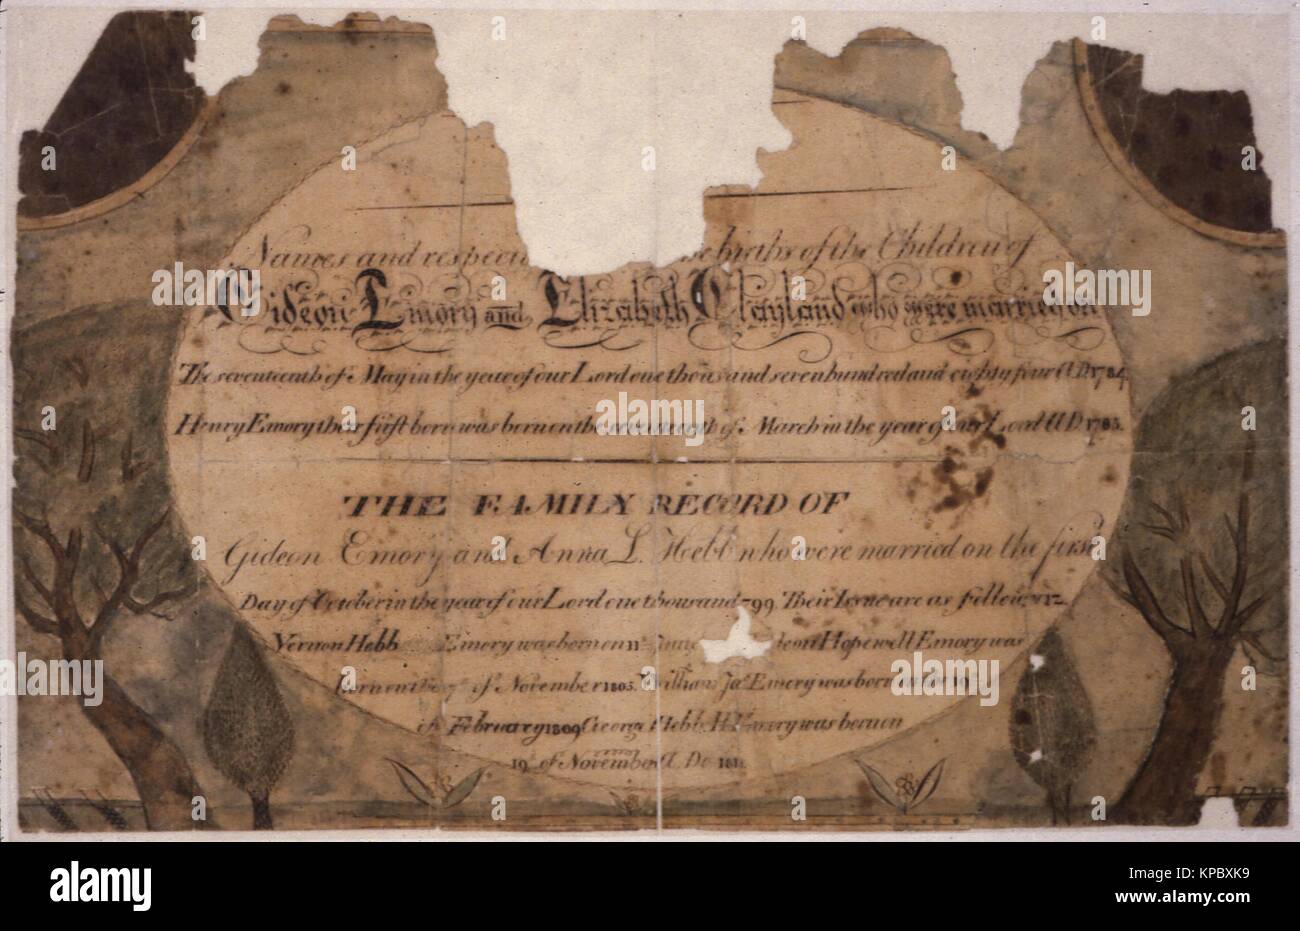 Names and respec births of the Children of
Gideon Emory and Elizabeth Clayland who were married on
The seventeenth of May in the year of our Lord one thous and seven hundred and eighty four A.D. 1784
Henry Emory their first born was born on the seventeenth of March in the year of our Lord A D 1785.
THE FAMILY RECORD OF
Gideon Emory and Anna L. Hebb who were married on the first
Day of October in the year of our Lord one thousand 799 Their Issue are as follows
Vernon Hebb Emory was born on 11th June deon Hopewell Emory was
born on the of November 1805. William Jas Emory was born on
of February 1809 George Hebb H Emory was born on
19th of November A. Do 181
alamy
a
alamy stock photo
KPBXK9
www.alamy.com